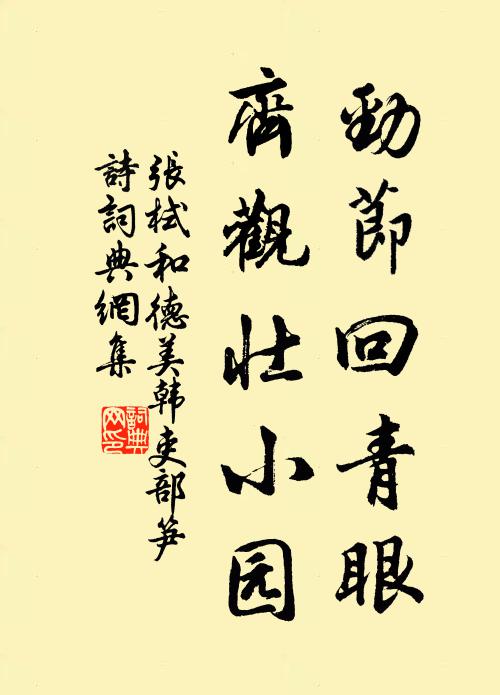 勁節回青眼
齊觀壯小园
張栻和德美韩吏部笋
詩詞典網集
詞典网印